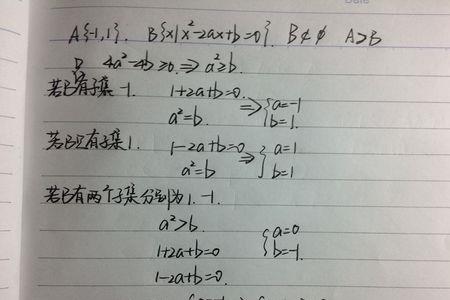 A{-1,1}. B{x|x²-2ax+b=0}. B≠∅ A⊃B
4a²-4b≥0. ⇒ a²≥b.
若B有子集-1. 1+2a+b=0. a²=b. ⇒ {a=-1 b=1.
若B只有子集1. 1-2a+b=0 a²=b ⇒ {a=1 b=1
若B有两个子集分别为1.-1.
a²>b.
1+2a+b=0 {a=0 b=-1.
1-2a+b=0.